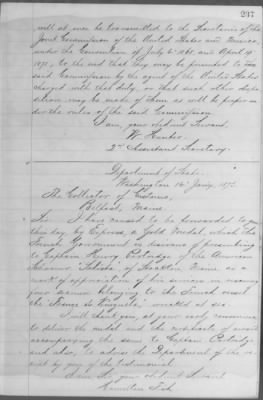 237
will at once be transmitted to the Secretaries of the
Joint Commission of the United States and Mexico,
under the Convention of July 4th 1868 and April 19
1871, to the end that they may be presented to the
said Commission by the agent of the United States
charged with that duty, or that such other dispo-
sition may be made of them as will be proper un-
der the rules of the said Commission.
I am, your obedient Servant,
W. Hunter,
2nd Assistant Secretary.
Department of State,
Washington 16th Jany, 187
The Collector of Customs,
Belfast, Maine.
Sir: I have caused to be forwarded to you
this day, by Express, a Gold Medal, which the
French Government is desirous of presenting
to Captain Henry Partridge of the American
Schooner of Stockton, Maine as a
mark of appreciation of his services in rescuing
your belonging to the French vessel
the wrecked at sea.
I will thank you, at your early convenience
to deliver the medal and the
accompanying the same to Captain Partridge
and also, to advise the Department of the re-
ceipt by you of the testimonial.
I am Sir your obedient Servant
Hamilton Fish